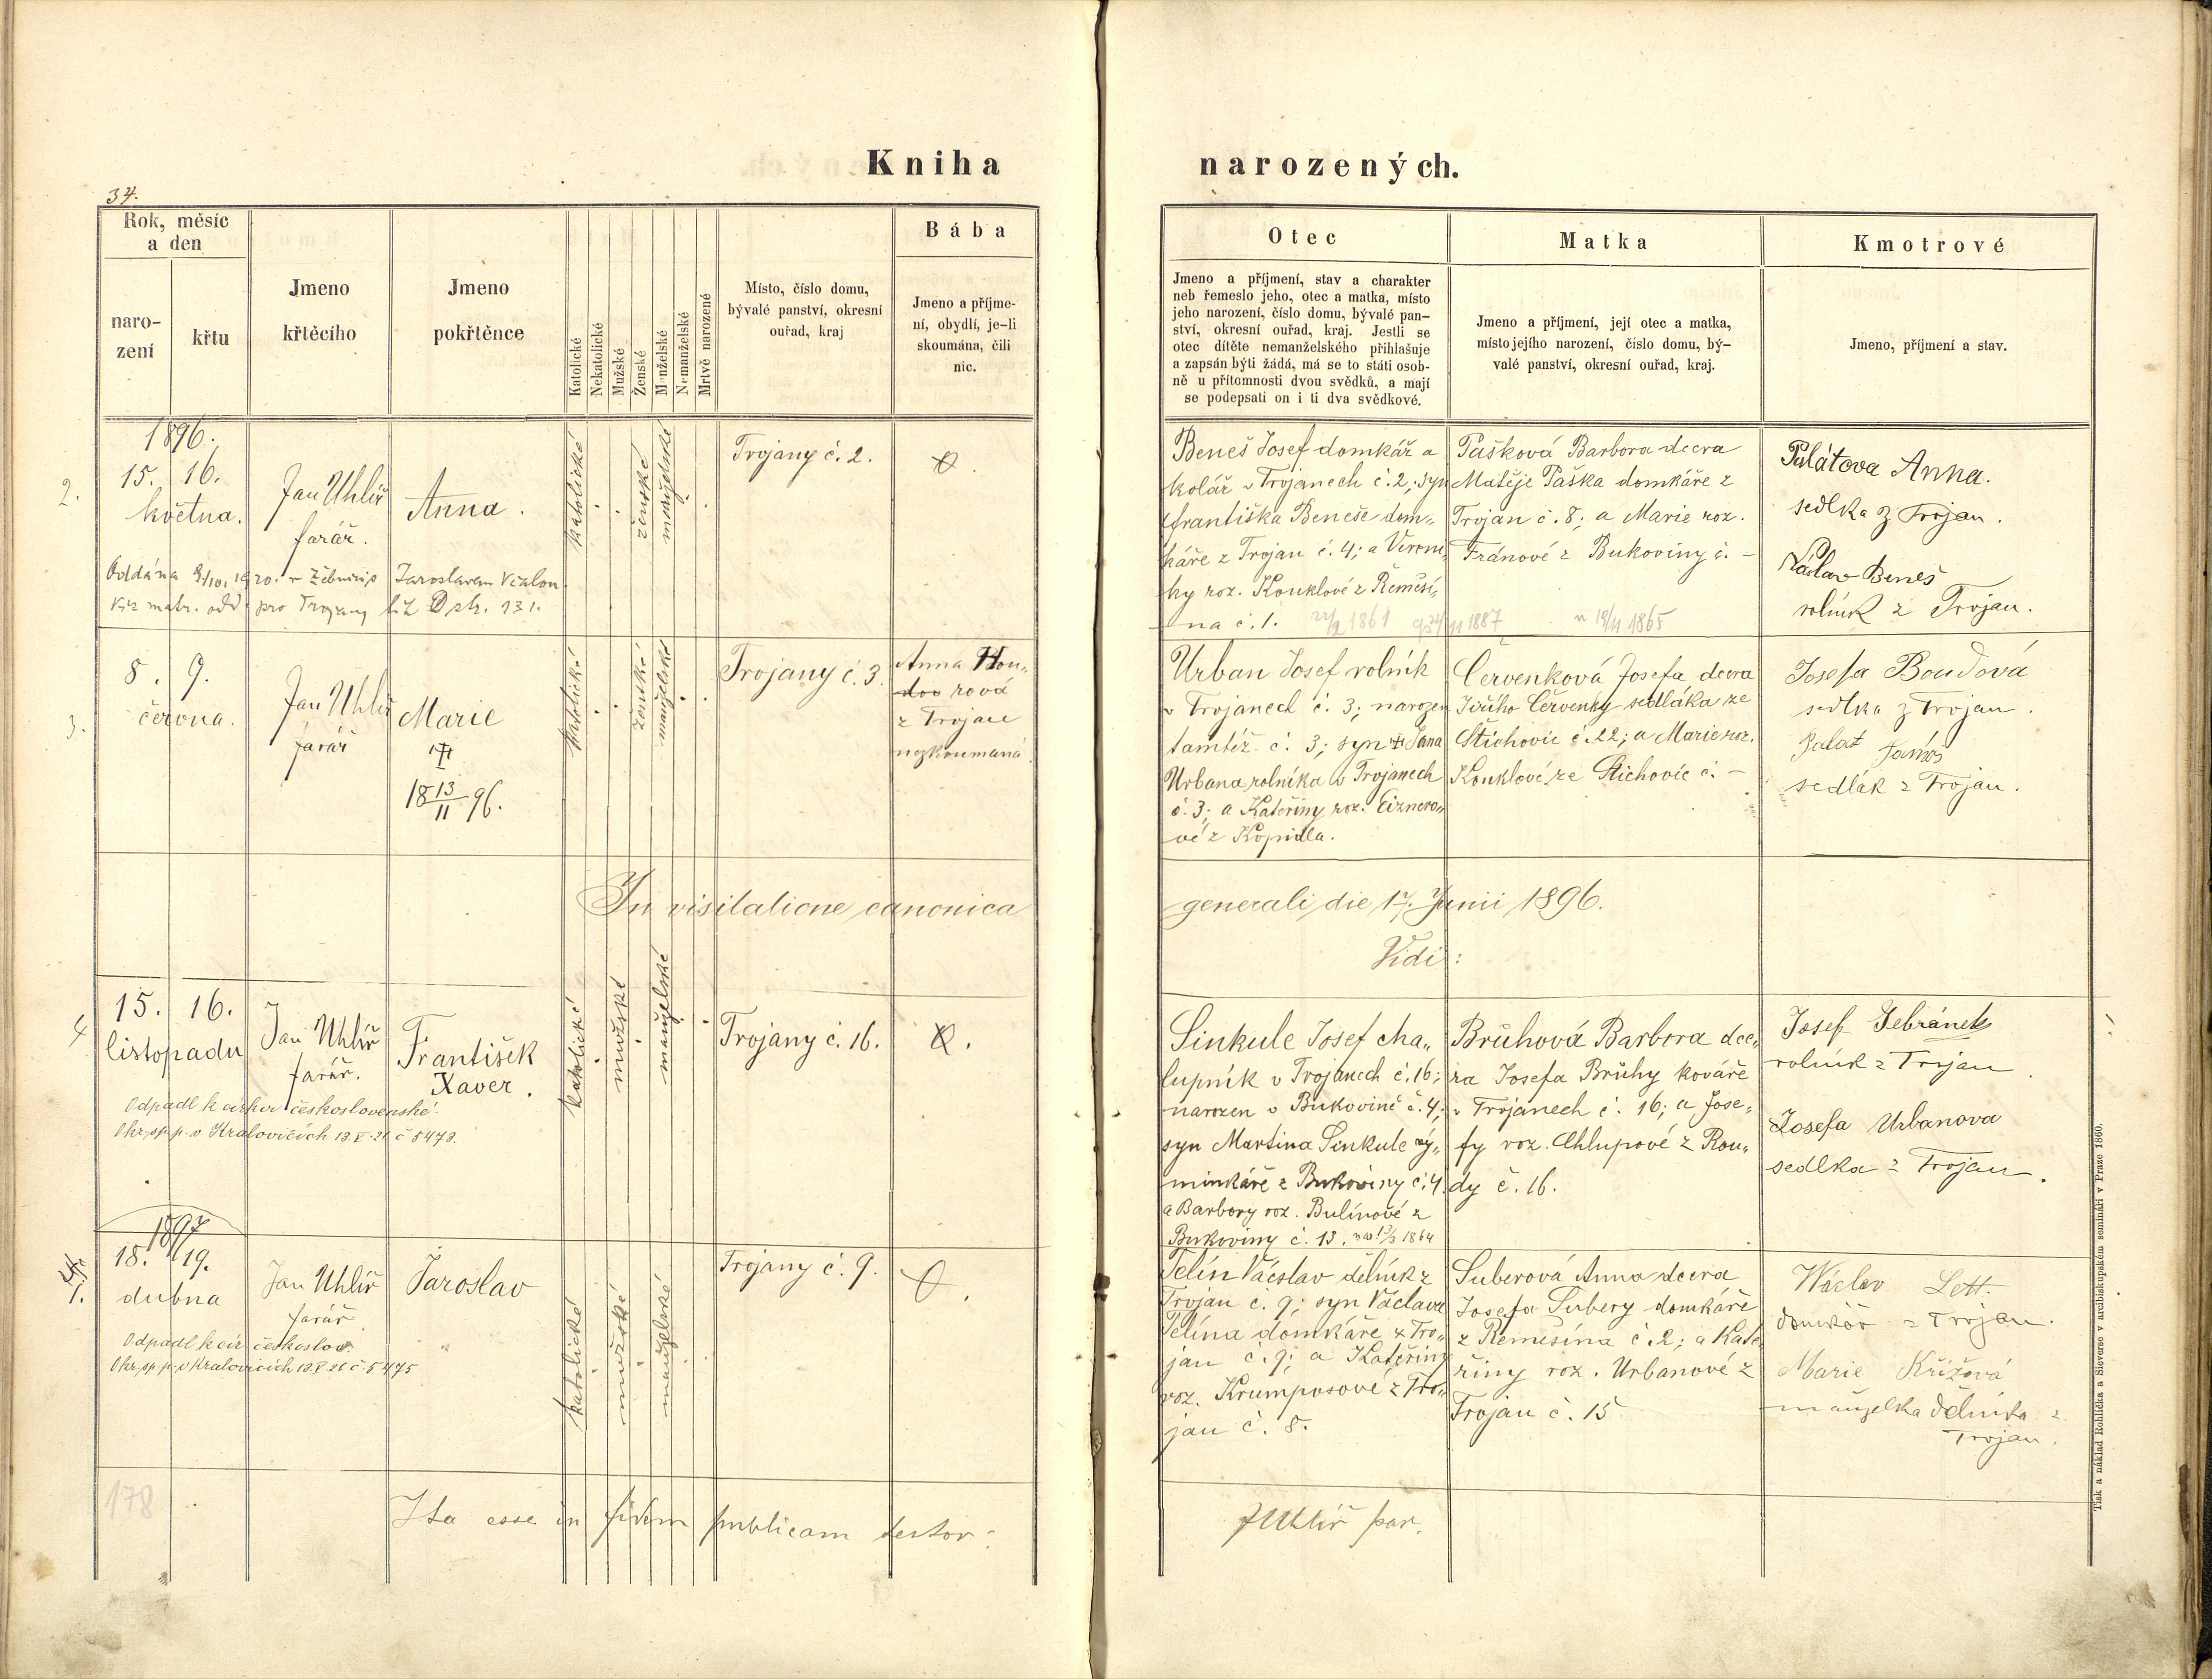 Kniha narozených.
34.
Rok, měsíc
a den
naro-
zení
křtu
Jmeno
křtěcího
Jmeno
pokřtěnce
Katolické
Nekatolické
Mužské
Ženské
Manželské
Nemanželské
Mrtvě narozené
Místo, číslo domu,
bývalé panství, okresní
ouřad, kraj
Bába
Jmeno a příjme-
ní, obydlí, je-li
skoumána, čili
nic.
Otec
Jmeno a příjmení, stav a charakter
neb řemeslo jeho, otec a matka, místo
jeho narození, číslo domu, bývalé pan-
ství, okresní ouřad, kraj. Jestli se
otec dítěte nemanželského přihlašuje
a zapsán býti žádá, má se to státi osob-
ně u přítomnosti dvou svědků, a mají
se podepsati on i ti dva svědkové.
Matka
Jmeno a příjmení, její otec a matka,
místo jejího narození, číslo domu, bý-
valé panství, okresní ouřad, kraj.
Kmotrové
Jmeno, příjmení a stav.
2.
1896.
15. 16.
května.
Jan Uhlíř
farář.
Anna.
katolické
ženské
manželské
Trojany č. 2.
Oddána 9./10. 1920. v Žebnici s Jaroslavem
Viz matr. odd. pro Trojany lit. D str. 131.
Beneš Josef domkář a
kolář v Trojanech č. 2, syn
Františka Beneše dom-
káře z Trojan č. 4; a Veroni-
ky roz. Kouklové z Řemeší-
na č. 1. 22/2 1861 24/11 1887
Pašková Barbora dcera
Matěje Paška domkáře z
Trojan č. 8; a Marie roz.
Fránové z Bukoviny č. -
n 18/11 1865
Palátova Anna.
sedlka z Trojan.
Václav Beneš
rolník z Trojan.
3.
8. 9.
června.
Jan Uhlíř
farář
Marie
18 13/11 96.
katolické
ženské
manželské
Trojany č. 3.
Anna Hou-
dov rová
z Trojan
nezkoumaná
Urban Josef rolník
v Trojanech č. 3; narozen
tamtéž č. 3; syn † Jana
Urbana rolníka v Trojanech
č. 3; a Kateřiny roz. Eiznero-
vé z Kopidla.
Červenková Josefa dcera
Jiřího Červenky sedláka ze
Štichovic č. 22; a Marie roz.
Kouklové ze Štichovic č. -
Josefa Boudová
sedlka z Trojan.
Palat
sedlák z Trojan.
In visitatione canonica generali die 17. Junii 1896.
Vidi:
4.
15. 16.
listopadu
Jan Uhlíř
farář.
František
Xaver.
katolické
mužské
manželské
Trojany č. 16.
Odpadl k církvi československé.
Okr. sp. p. v Kralovicích 13.V.21 č 5473.
Sinkule Josef cha-
lupník v Trojanech č. 16;
narozen v Bukovině č. 4;
syn Martina Sinkule vý-
minkáře z Bukoviny č. 4.
a Barbory roz. Bulínové z
Bukoviny č. 13. nar. 13/3 1864
Brůhová Barbora dce-
ra Josefa Brůhy kováře
v Trojanech č. 16; a Jose-
fy roz. Chlupové z Rou-
dy č. 16.
Josef Jebránek
rolník z Trojan.
Josefa Urbanova
sedlka z Trojan.
1897
1.
18. 19.
dubna
Jan Uhlíř
farář
Jaroslav
katolické
mužské
manželské
Trojany č. 9.
Odpadl k cír. českoslov.
Okr. sp. p. v Kralovicích 13.V.21 č 5475
Jelín Václav dělník z
Trojan č. 9; syn Václava
Jelína domkáře z Tro-
jan č. 9; a Kateřiny
roz. Krumposové z Tro-
jan č. 8.
Suberová Anna dcera
Josefa Subery domkáře
z Řemešína č. 2; a Kate-
řiny roz. Urbanové z
Trojan č. 15
Wáclav Lett.
domkář z Trojan.
Marie Křížová
manželka dělníka z
Trojan.
178
Ita esse in fidem publicam testor: JUhlíř par.
Tisk a náklad Rohlíčka a Sieverse v arcibiskupském semináři v Praze 1860.